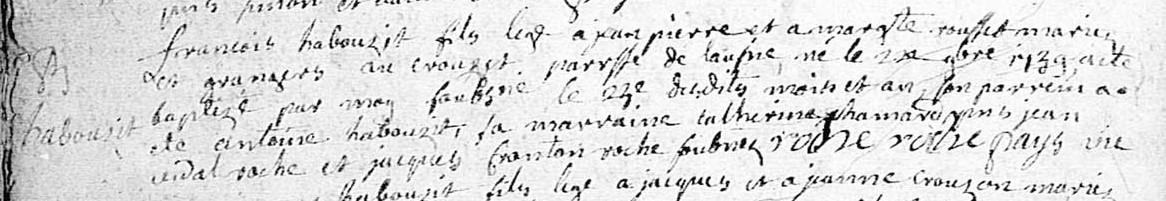 francois habouzit fils lege a jean pierre et a margte rousset maries
et grangers au crouzet parsse de lausne, ne le 22 9bre 1739 a ete
baptize par moy soubsne le 23e dudits mois et an, son parrein a
Habouzit
ete antoine habouzit, sa marraine catherine chamard pnts jean
vidal roche et jacques fronton roche soubnes roche roche pays vic
habouzit fils lege a jacques et a jeanne crouzon maries